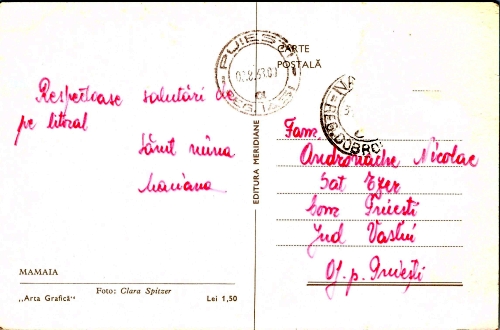 CARTE
POȘTALĂ
PUIEȘTI
Respectoase salutări de
pe litoral
Sărut mîna
Mariana
EDITURA MERIDIANE
Fam.
Andronache Nicolae
Sat Ezer
Com Puiesti
Jud Vaslui
Of. p. Puiești
MAMAIA
Foto: Clara Spitzer
„Arta Grafică”
Lei 1,50
REG. DOBRO